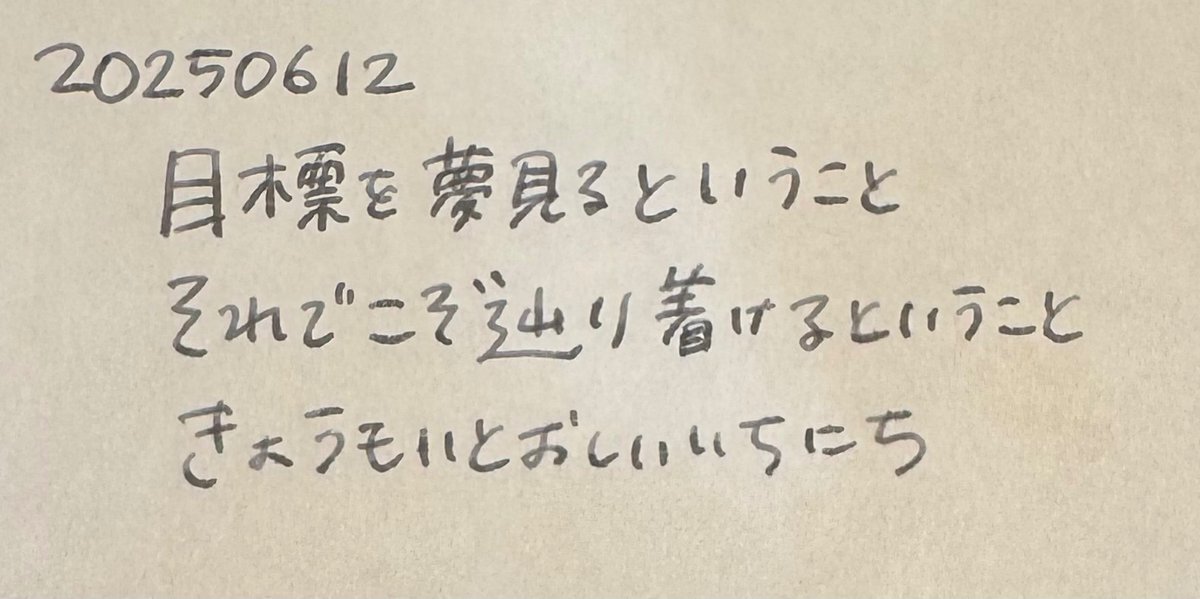 20250612
目標を夢見るということ
それでこそ辿り着けるということ
きょうもいとおしいいちにち